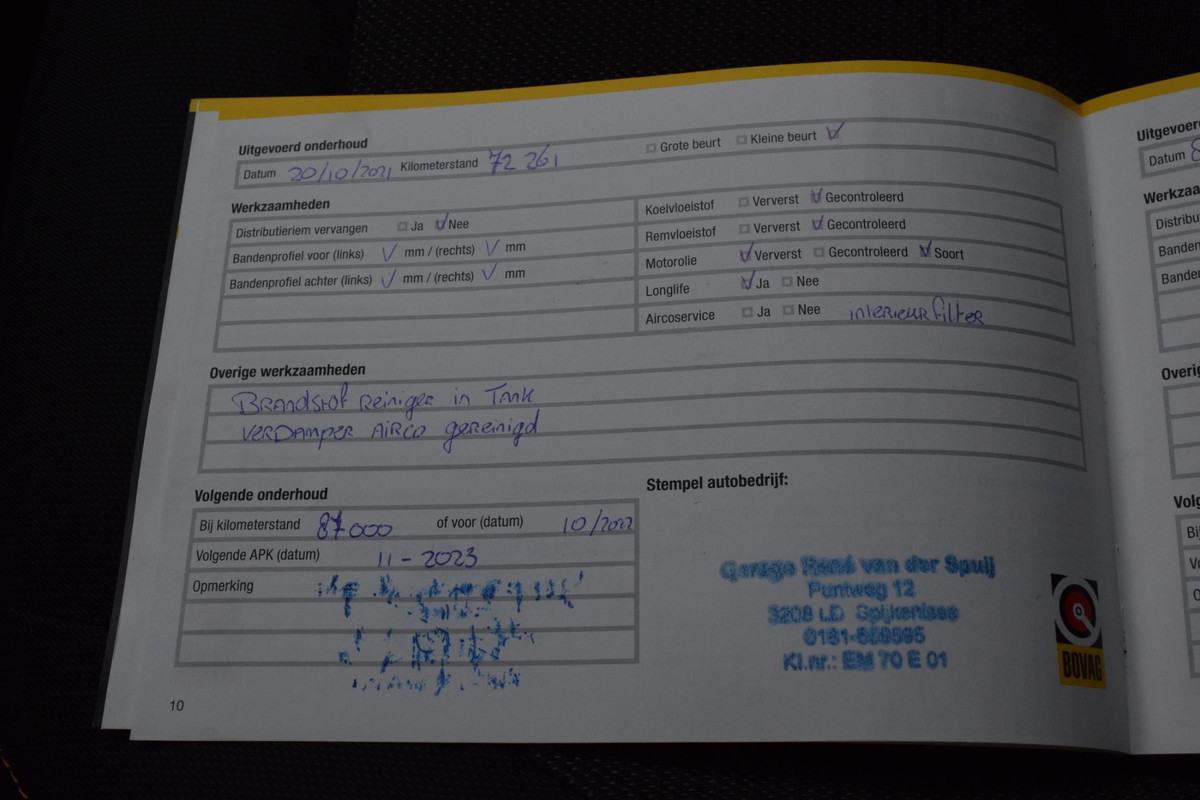 Uitgevoerd onderhoud
Datum 20/10/2021 Kilometerstand 72 261 Grote beurt Kleine beurt
Werkzaamheden
Distributieriem vervangen Ja Nee
Bandenprofiel voor (links) mm / (rechts) mm
Bandenprofiel achter (links) mm / (rechts) mm
Koelvloeistof Ververst Gecontroleerd
Remvloeistof Ververst Gecontroleerd
Motorolie Ververst Gecontroleerd Soort
Longlife Ja Nee
Aircoservice Ja Nee interieurfilter
Overige werkzaamheden
Brandstof reiniger in Tank
verDamper Airco gereinigd
Volgende onderhoud
Bij kilometerstand 87000 of voor (datum) 10/2022
Volgende APK (datum) 11-2023
Opmerking
Stempel autobedrijf:
Garage René van der Spuij
Puntweg 12
3208 LD Spijkenisse
0181-
Kl.nr.: EM 70 E 01
BOVAG
10
Datum 8